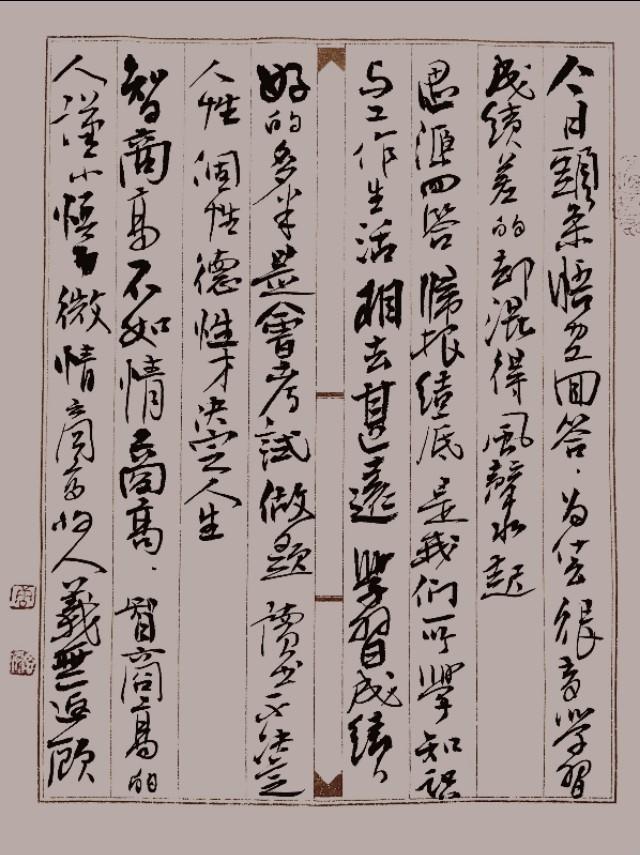 今日頭条悟空回答·为什么很多學習
成绩差的却混得風聲水起
思涯回答 歸根结底是我们所學知识
与工作生活相去甚遠 學習成绩
好的多半是會考試做题 讀书不决定
人性 個性德性才决定人生
智商高不如情商高·智商高的
人谨小慎微情商高的人義無返顾